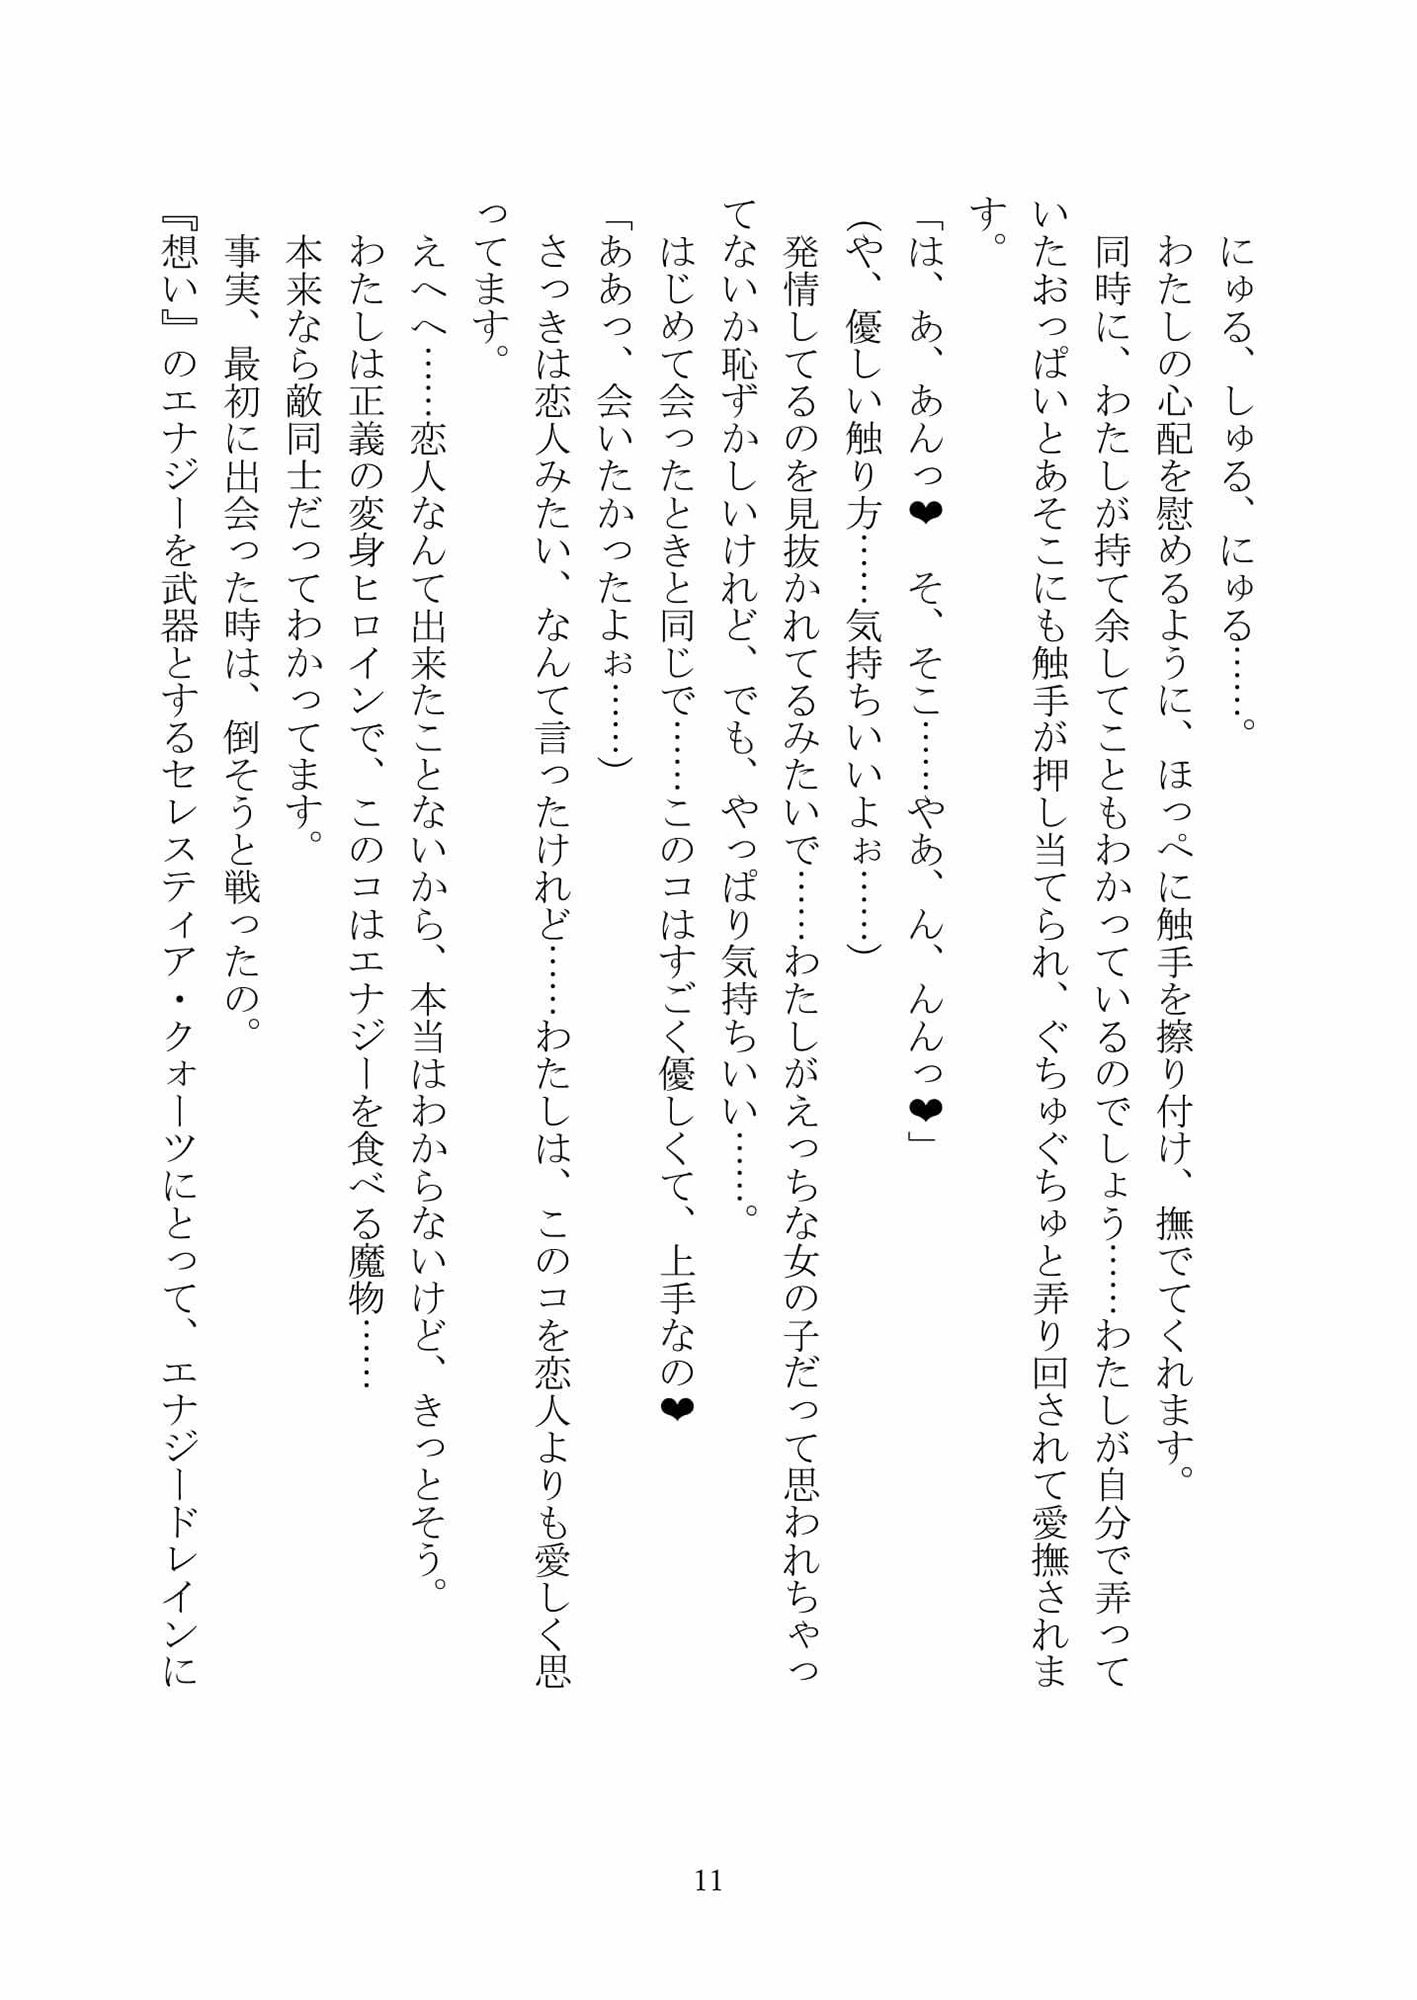 にゅる、しゅる、にゅる……。
わたしの心配を慰めるように、ほっぺに触手を擦り付け、撫でてくれます。
同時に、わたしが持て余してこともわかっているのでしょう……わたしが自分で弄って
いたおっぱいとあそこにも触手が押し当てられ、ぐちゅぐちゅと弄り回されて愛撫されま
す。
「は、あ、あんっ❤　そ、そこ……やあ、ん、んんっ❤」
（や、優しい触り方……気持ちいいよぉ……）
発情してるのを見抜かれてるみたいで……わたしがえっちな女の子だって思われちゃっ
てないか恥ずかしいけれど、でも、やっぱり気持ちいい……。
はじめて会ったときと同じで……このコはすごく優しくて、上手なの❤
「ああっ、会いたかったよぉ……）
さっきは恋人みたい、なんて言ったけれど……わたしは、このコを恋人よりも愛しく思
ってます。
えへへ……恋人なんて出来たことないから、本当はわからないけど、きっとそう。
わたしは正義の変身ヒロインで、このコはエナジーを食べる魔物……
本来なら敵同士だってわかってます。
事実、最初に出会った時は、倒そうと戦ったの。
『想い』のエナジーを武器とするセレスティア・クォーツにとって、エナジードレインに
11